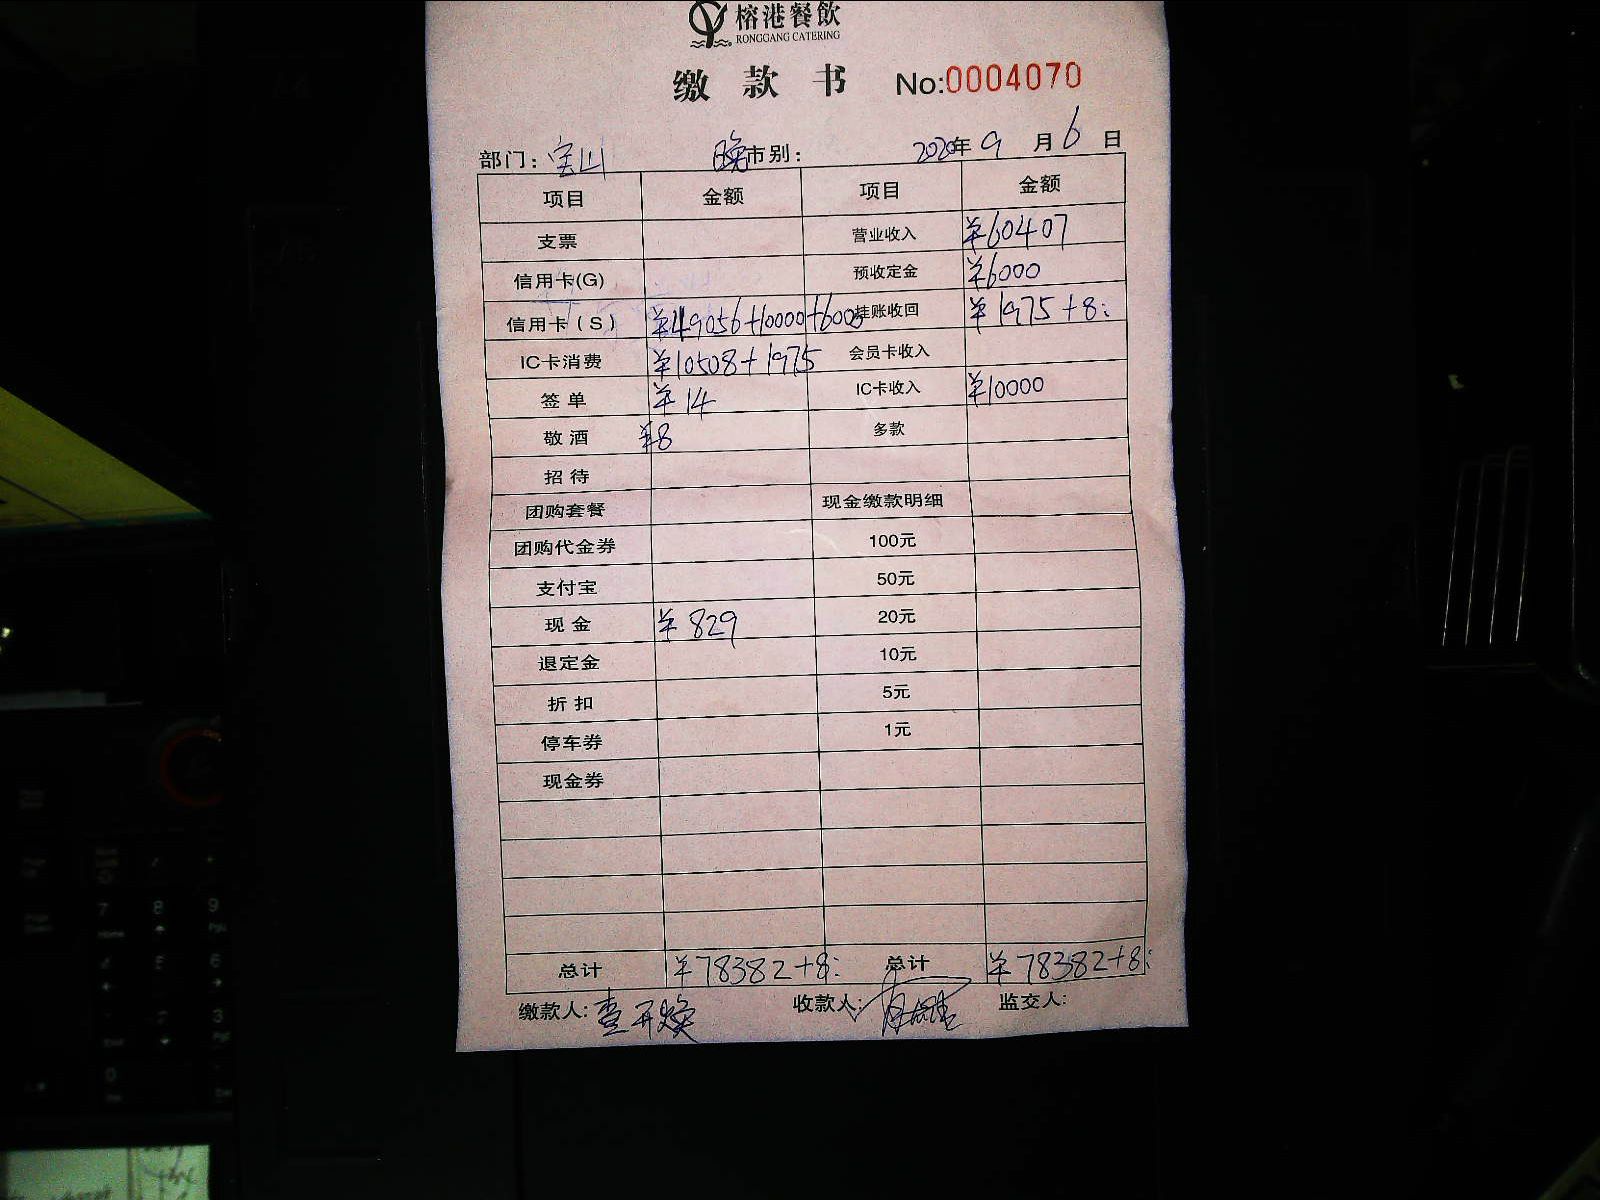 榕港餐飲
RONGGANG CATERING
缴款书 No:0004070
部门: 宝山 晚市别: 2020年 9 月 6 日
项目 金额 项目 金额
支票 营业收入 ¥60407
信用卡(G) 预收定金 ¥6000
信用卡(S) ¥49056+10000+6000 挂账收回 ¥1975+8:
IC卡消费 ¥10508+1975 会员卡收入
签单 ¥14 IC卡收入 ¥10000
敬酒 ¥8 多款
招待
团购套餐 现金缴款明细
团购代金券 100元
支付宝 50元
现金 ¥829 20元
退定金 10元
折扣 5元
停车券 1元
现金券
总计 ¥78382+8: 总计 ¥78382+8:
缴款人: 收款人: 监交人:
7 8 9
Home
5 6
3
0